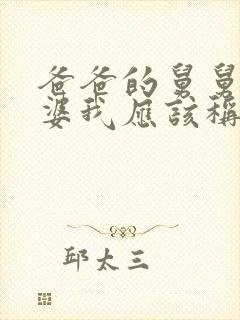 爸爸的舅舅
婆我應該稱
邱太三